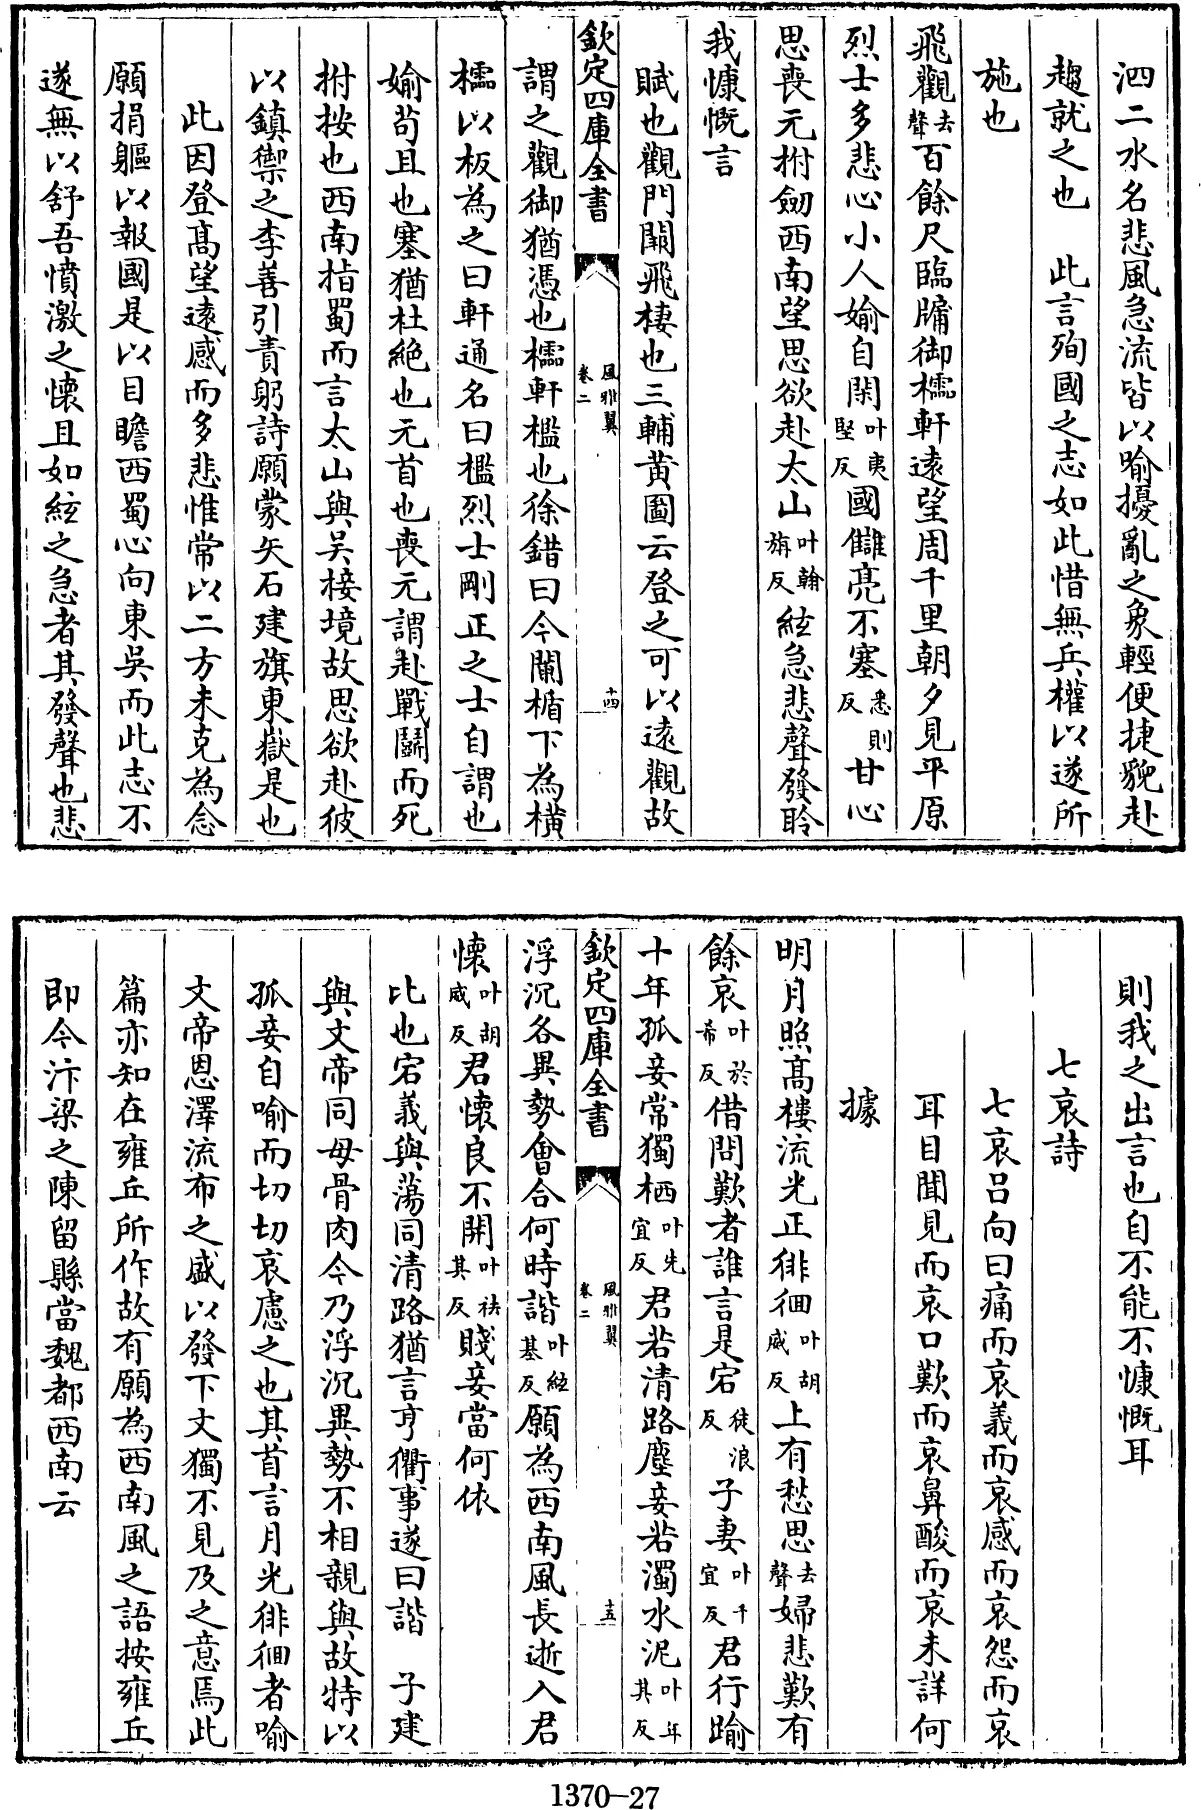 泗二水名悲風急流皆以喻擾亂之象輕便捷貌赴
趨就之也　此言殉國之志如此惜無兵權以遂所
施也
飛觀去聲百餘尺臨牖御櫺軒遠望周千里朝夕見平原
烈士多悲心小人媮自閑叶夷堅反國讎亮不塞悉則反甘心
思喪元拊劒西南望思欲赴太山叶翰旃反絃急悲聲發聆
我慷慨言
賦也觀門闕飛棲也三輔黄圖云登之可以遠觀故
欽定四庫全書　風雅翼卷二　十四
謂之觀御猶憑也櫺軒檻也徐錯曰今闌楯下為橫
櫺以板為之曰軒通名曰檻烈士剛正之士自謂也
媮苟且也塞猶杜絶也元首也喪元謂赴戰鬭而死
拊按也西南指蜀而言太山與吴接境故思欲赴彼
以鎮禦之李善引責躬詩願蒙矢石建旗東嶽是也
此因登高望遠感而多悲惟常以二方未克為念
願捐軀以報國是以目瞻西蜀心向東吳而此志不
遂無以舒吾憤激之懷且如絃之急者其發聲也悲
則我之出言也自不能不慷慨耳
七哀詩
七哀吕向曰痛而哀義而哀感而哀怨而哀
耳目聞見而哀口歎而哀鼻酸而哀未詳何
據
明月照高樓流光正徘徊叶胡威反上有愁思去聲婦悲歎有
餘哀叶於希反借問歎者誰言是宕徒浪反子妻叶千宜反君行踰
十年孤妾常獨栖叶先宜反君若清路塵妾若濁水泥叶年其反
欽定四庫全書　風雅翼卷二　十五
浮沉各異勢會合何時諧叶絃基反願為西南風長逝入君
懷叶胡威反君懷良不開叶袪其反賤妾當何依
比也宕義與蕩同清路猶言亨衢事遂曰諧　子建
與文帝同母骨肉今乃浮沉異勢不相親與故特以
孤妾自喻而切切哀慮之也其首言月光徘徊者喻
文帝恩澤流布之盛以發下文獨不見及之意焉此
篇亦知在雍丘所作故有願為西南風之語按雍丘
即今汴梁之陳留縣當魏都西南云
1370—27